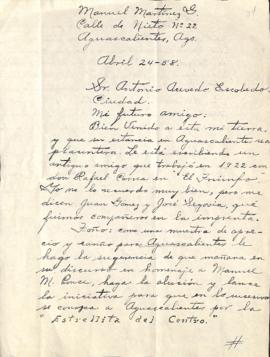 Manuel Martinez G.
Calle de Nieto Nº 22
Aguascalientes, Ags.
Abril 24-58.
Sr. Antonio Acevedo Escobedo.
Ciudad.
Mi futuro amigo:
Bien venido a esta mi tierra,
y que su estancia en Aguascalientes sea
placentera. Le está escribiendo un
antiguo amigo que trabajó en 1922 con
don Rafael Correa en "El Triunfo"
Yo no lo recuerdo muy bien, pero me
dicen Juan Gómez y José Segovia, que
fuimos compañeros en la imprenta.
como una muestra de apre-
cio y cariño para Aguascalientes le
hago la sugerencia de que mañana en
su discurso en homenaje a Manuel
M. Ponce, haga la alusión y lance
la iniciativa para que en lo sucesivo
se conozca a Aguascalientes por la
"Estrellita del Centro."